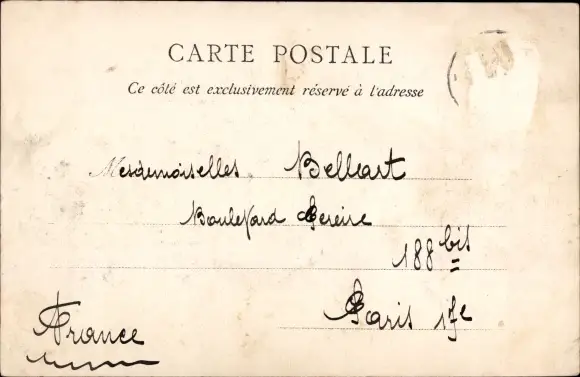 CARTE POSTALE
Ce côté est exclusivement réservé à l'adresse
Mesdemoiselles Belleart
Boulevard Pereire
188 bis
Paris 17e
France